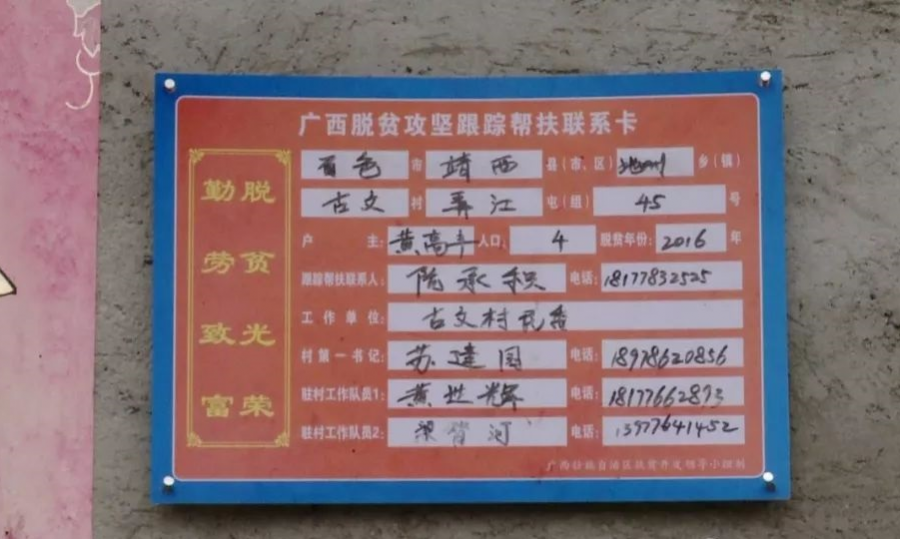 广西脱贫攻坚跟踪帮扶联系卡
脱贫光荣
勤劳致富
百色市靖西县(市、区)地州乡(镇)
古文村弄江屯(组)45号
户主:黄高丰人口:4脱贫年份:2016年
跟踪帮扶联系人:陆承积电话:18177832525
工作单位:古文村民委
村第一书记:苏建国电话:18978620856
驻村工作队员1:黄世辉电话:18177662893
驻村工作队员2:梁肯河电话:13977641452
广西壮族自治区扶贫开发领导小组制